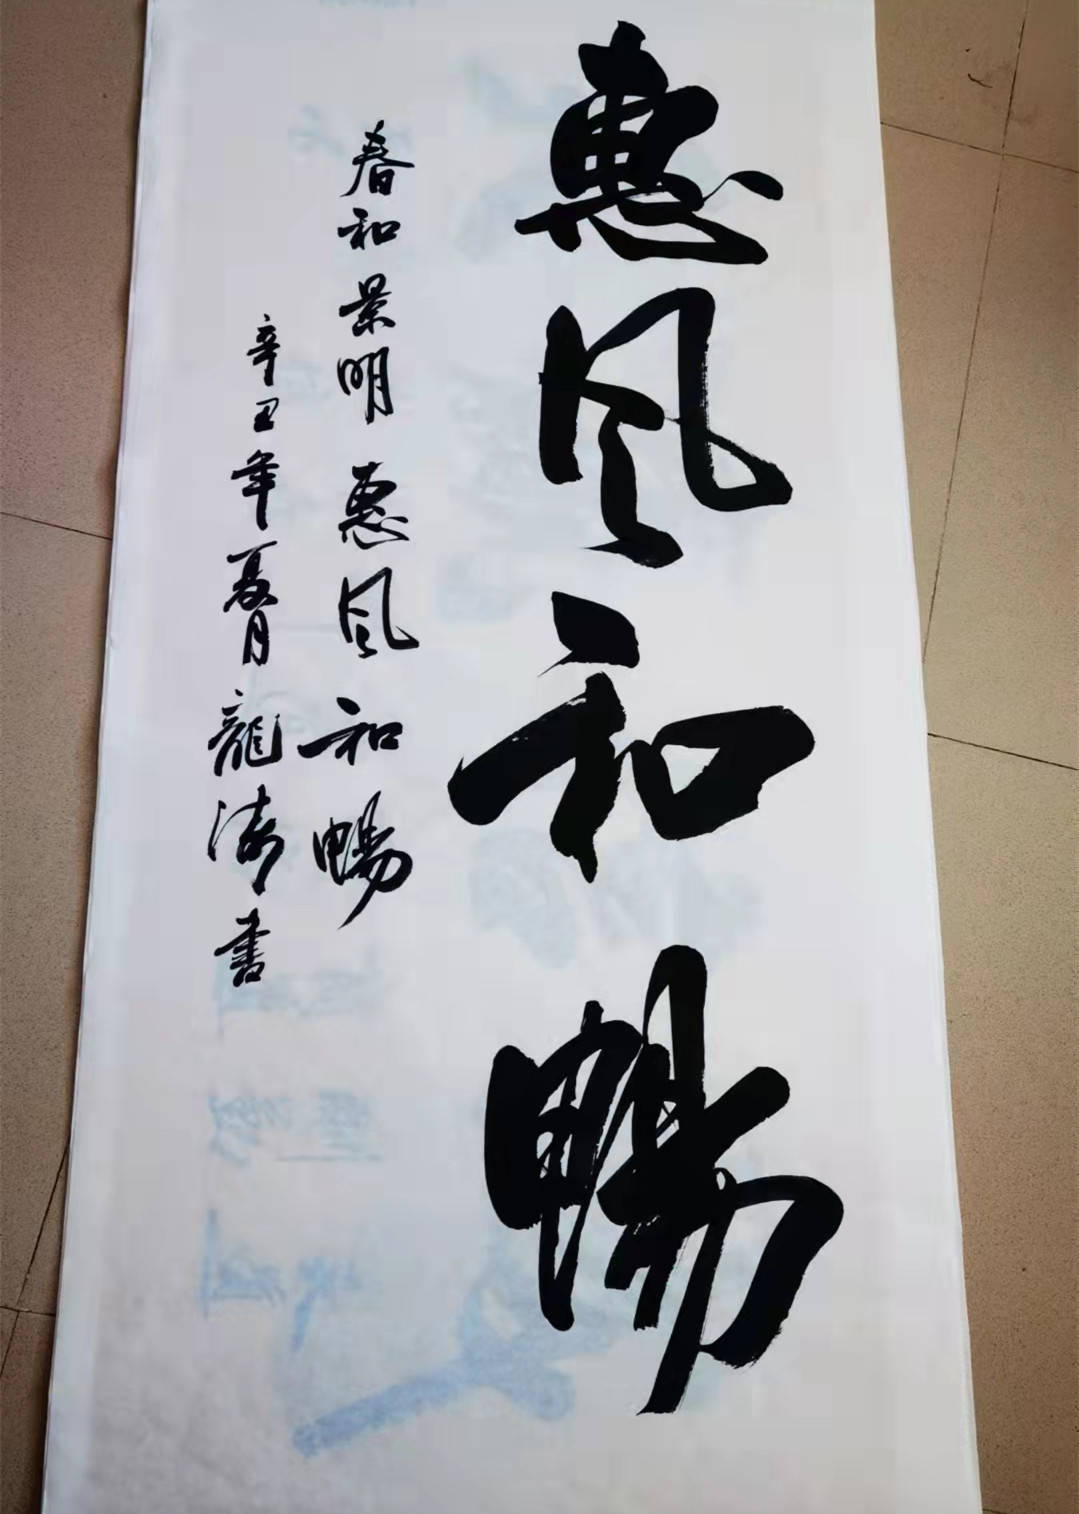 惠风和畅
春和景明惠风和畅
辛丑年夏月龍涛書